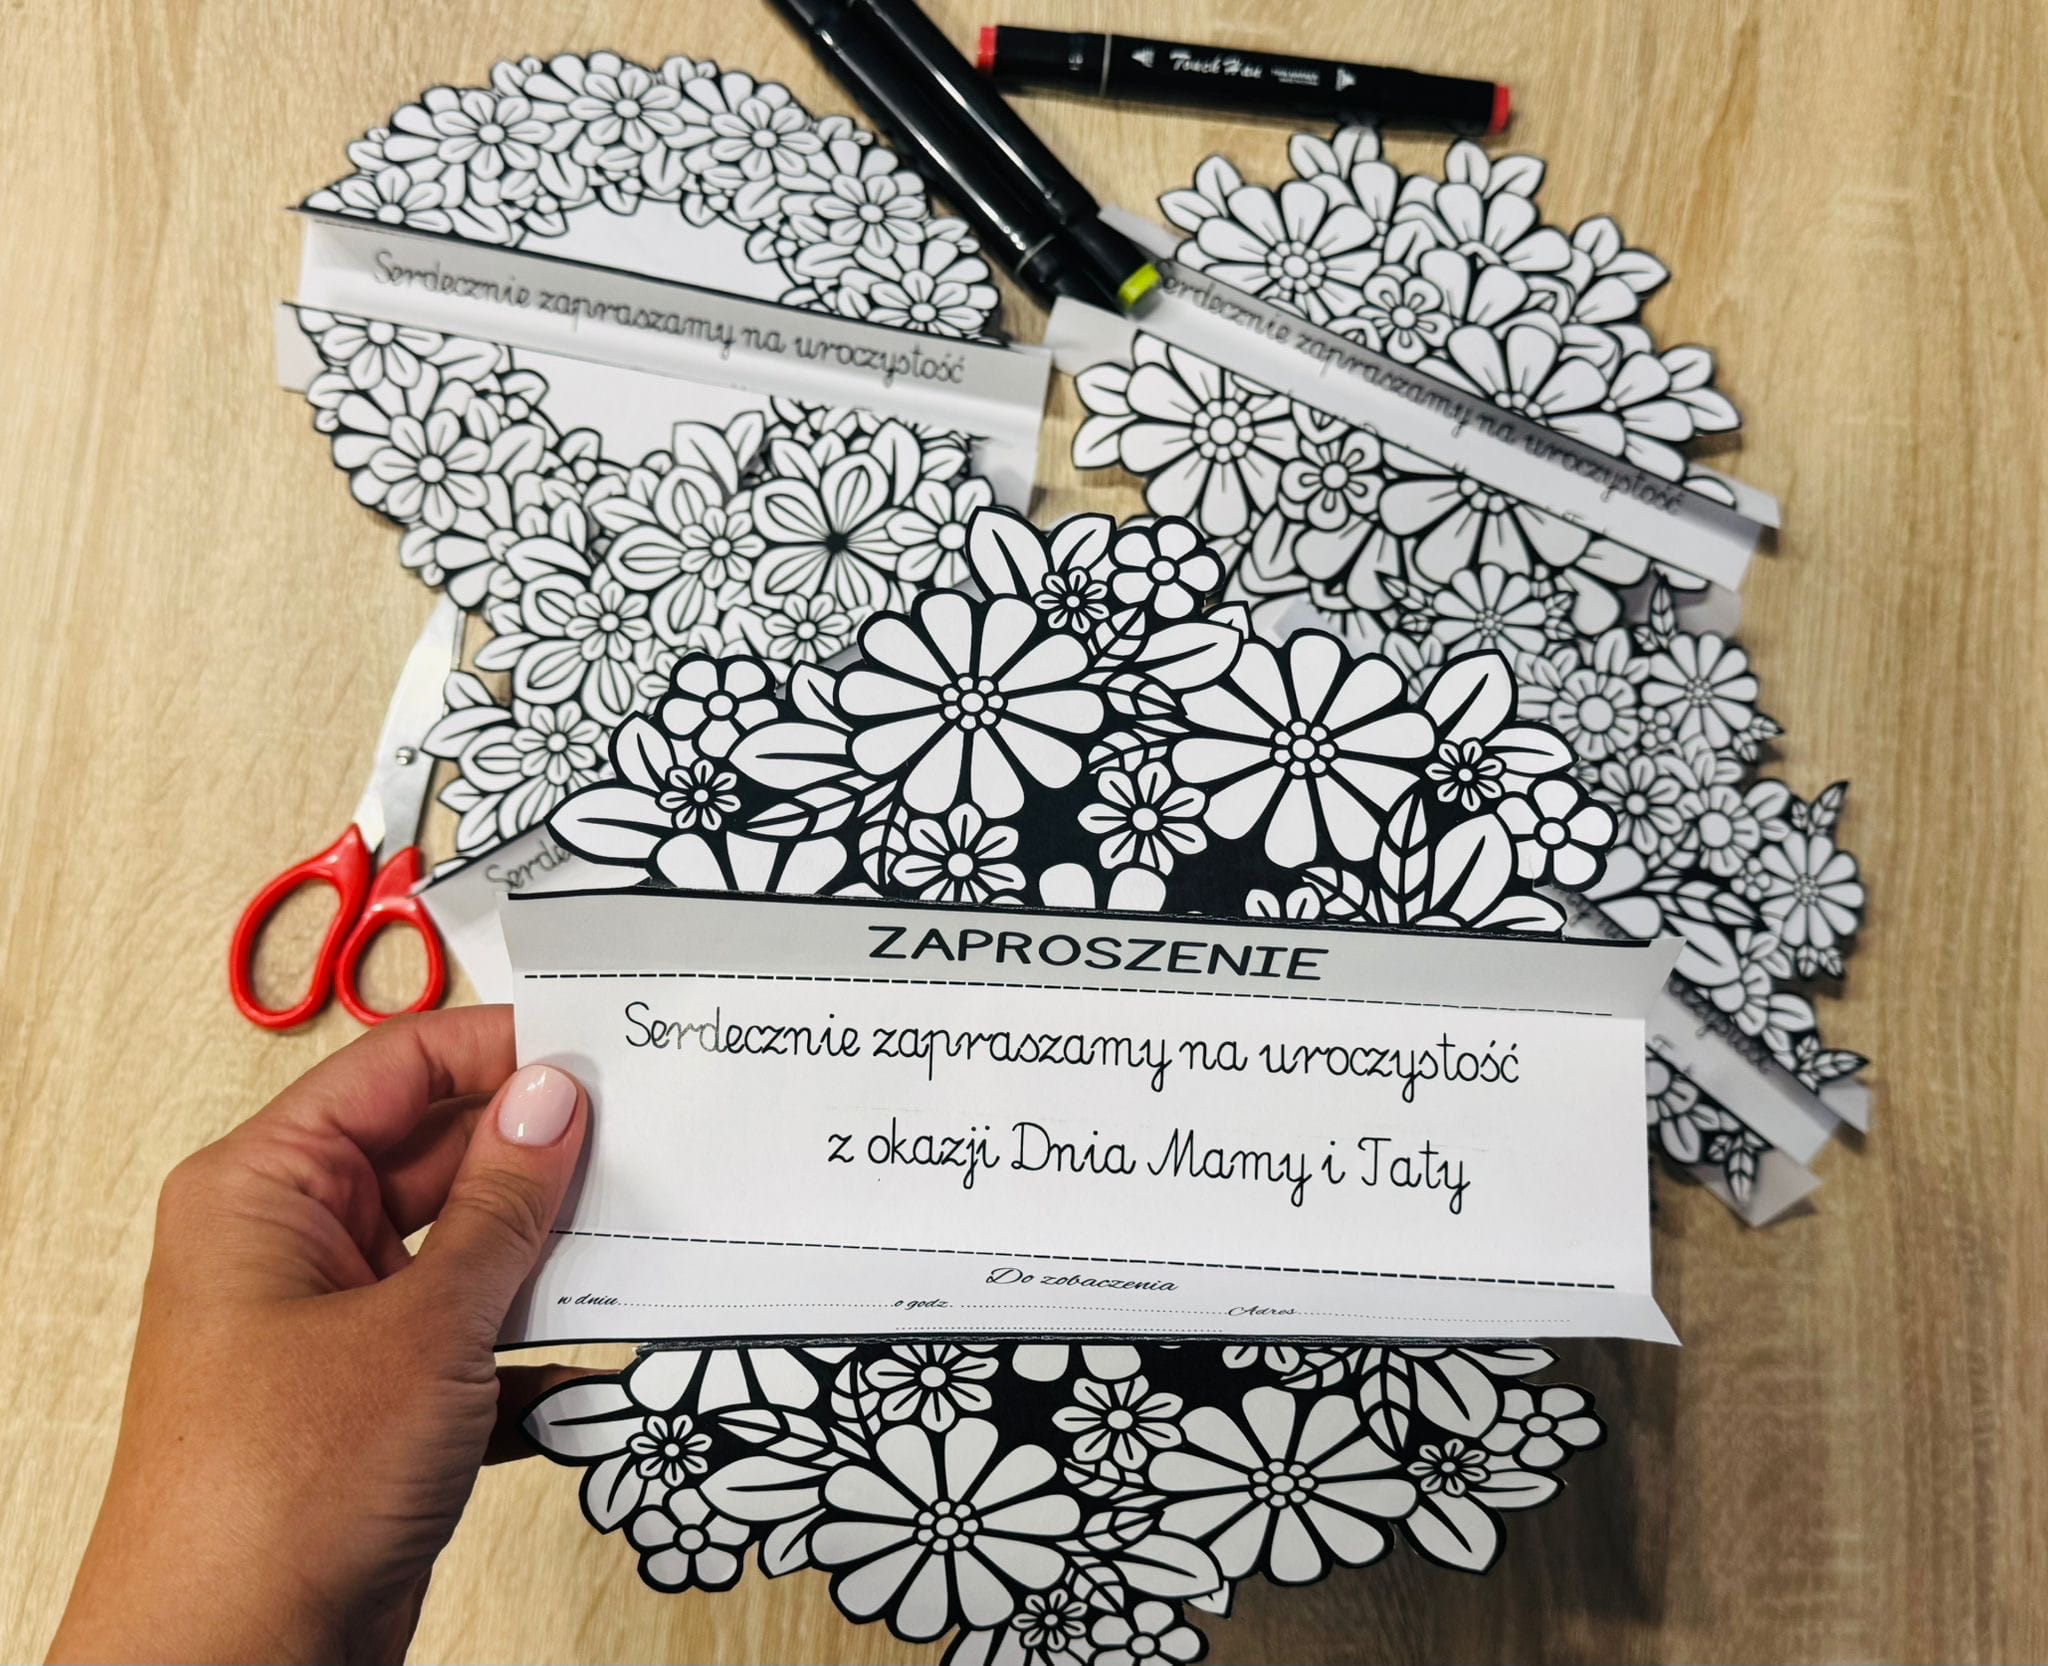 Touch Hue
Serdecznie zapraszamy na uroczystość
Serdecznie zapraszamy na uroczystość
Serde
ZAPROSZENIE
Serdecznie zapraszamy na uroczystość
z okazji Dnia Mamy i Taty
Do zobaczenia
w dniu..............................o godz..............................Adres..............................